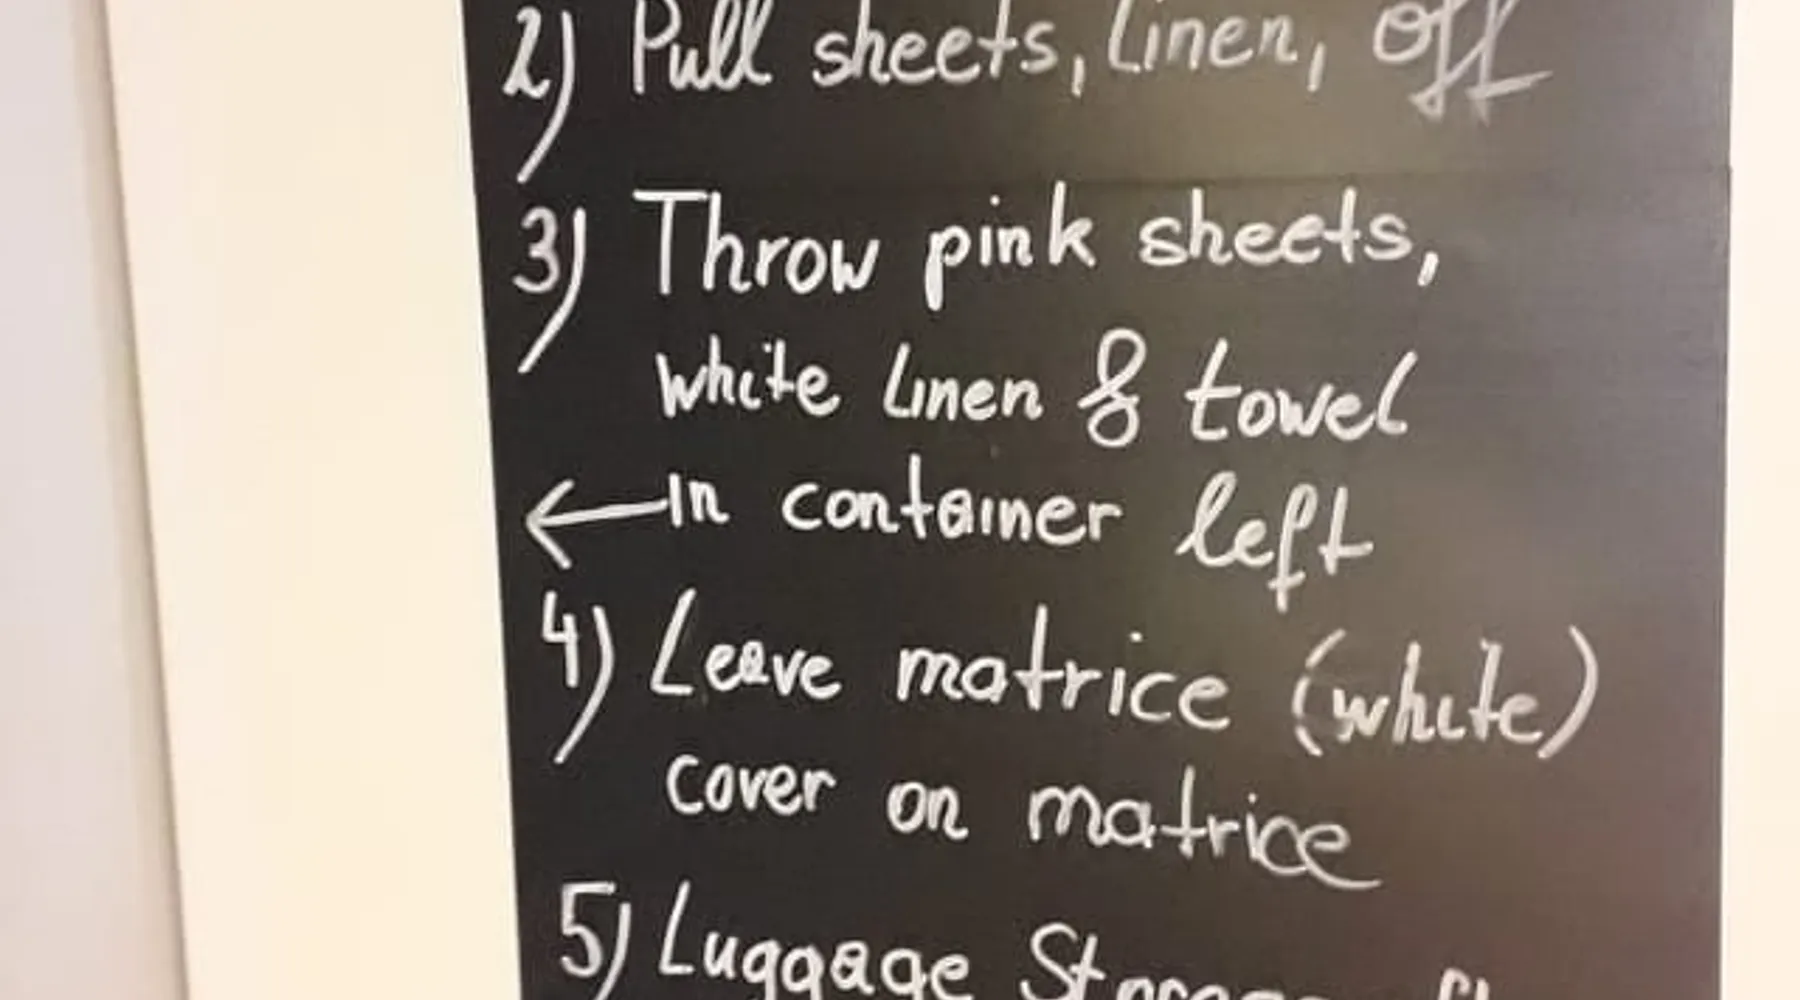 2) Pull sheets, linen, off
3) Throw pink sheets,
white linen & towel
← in container left
4) Leave matrice (white)
cover on matrice
5) Luggage Storage